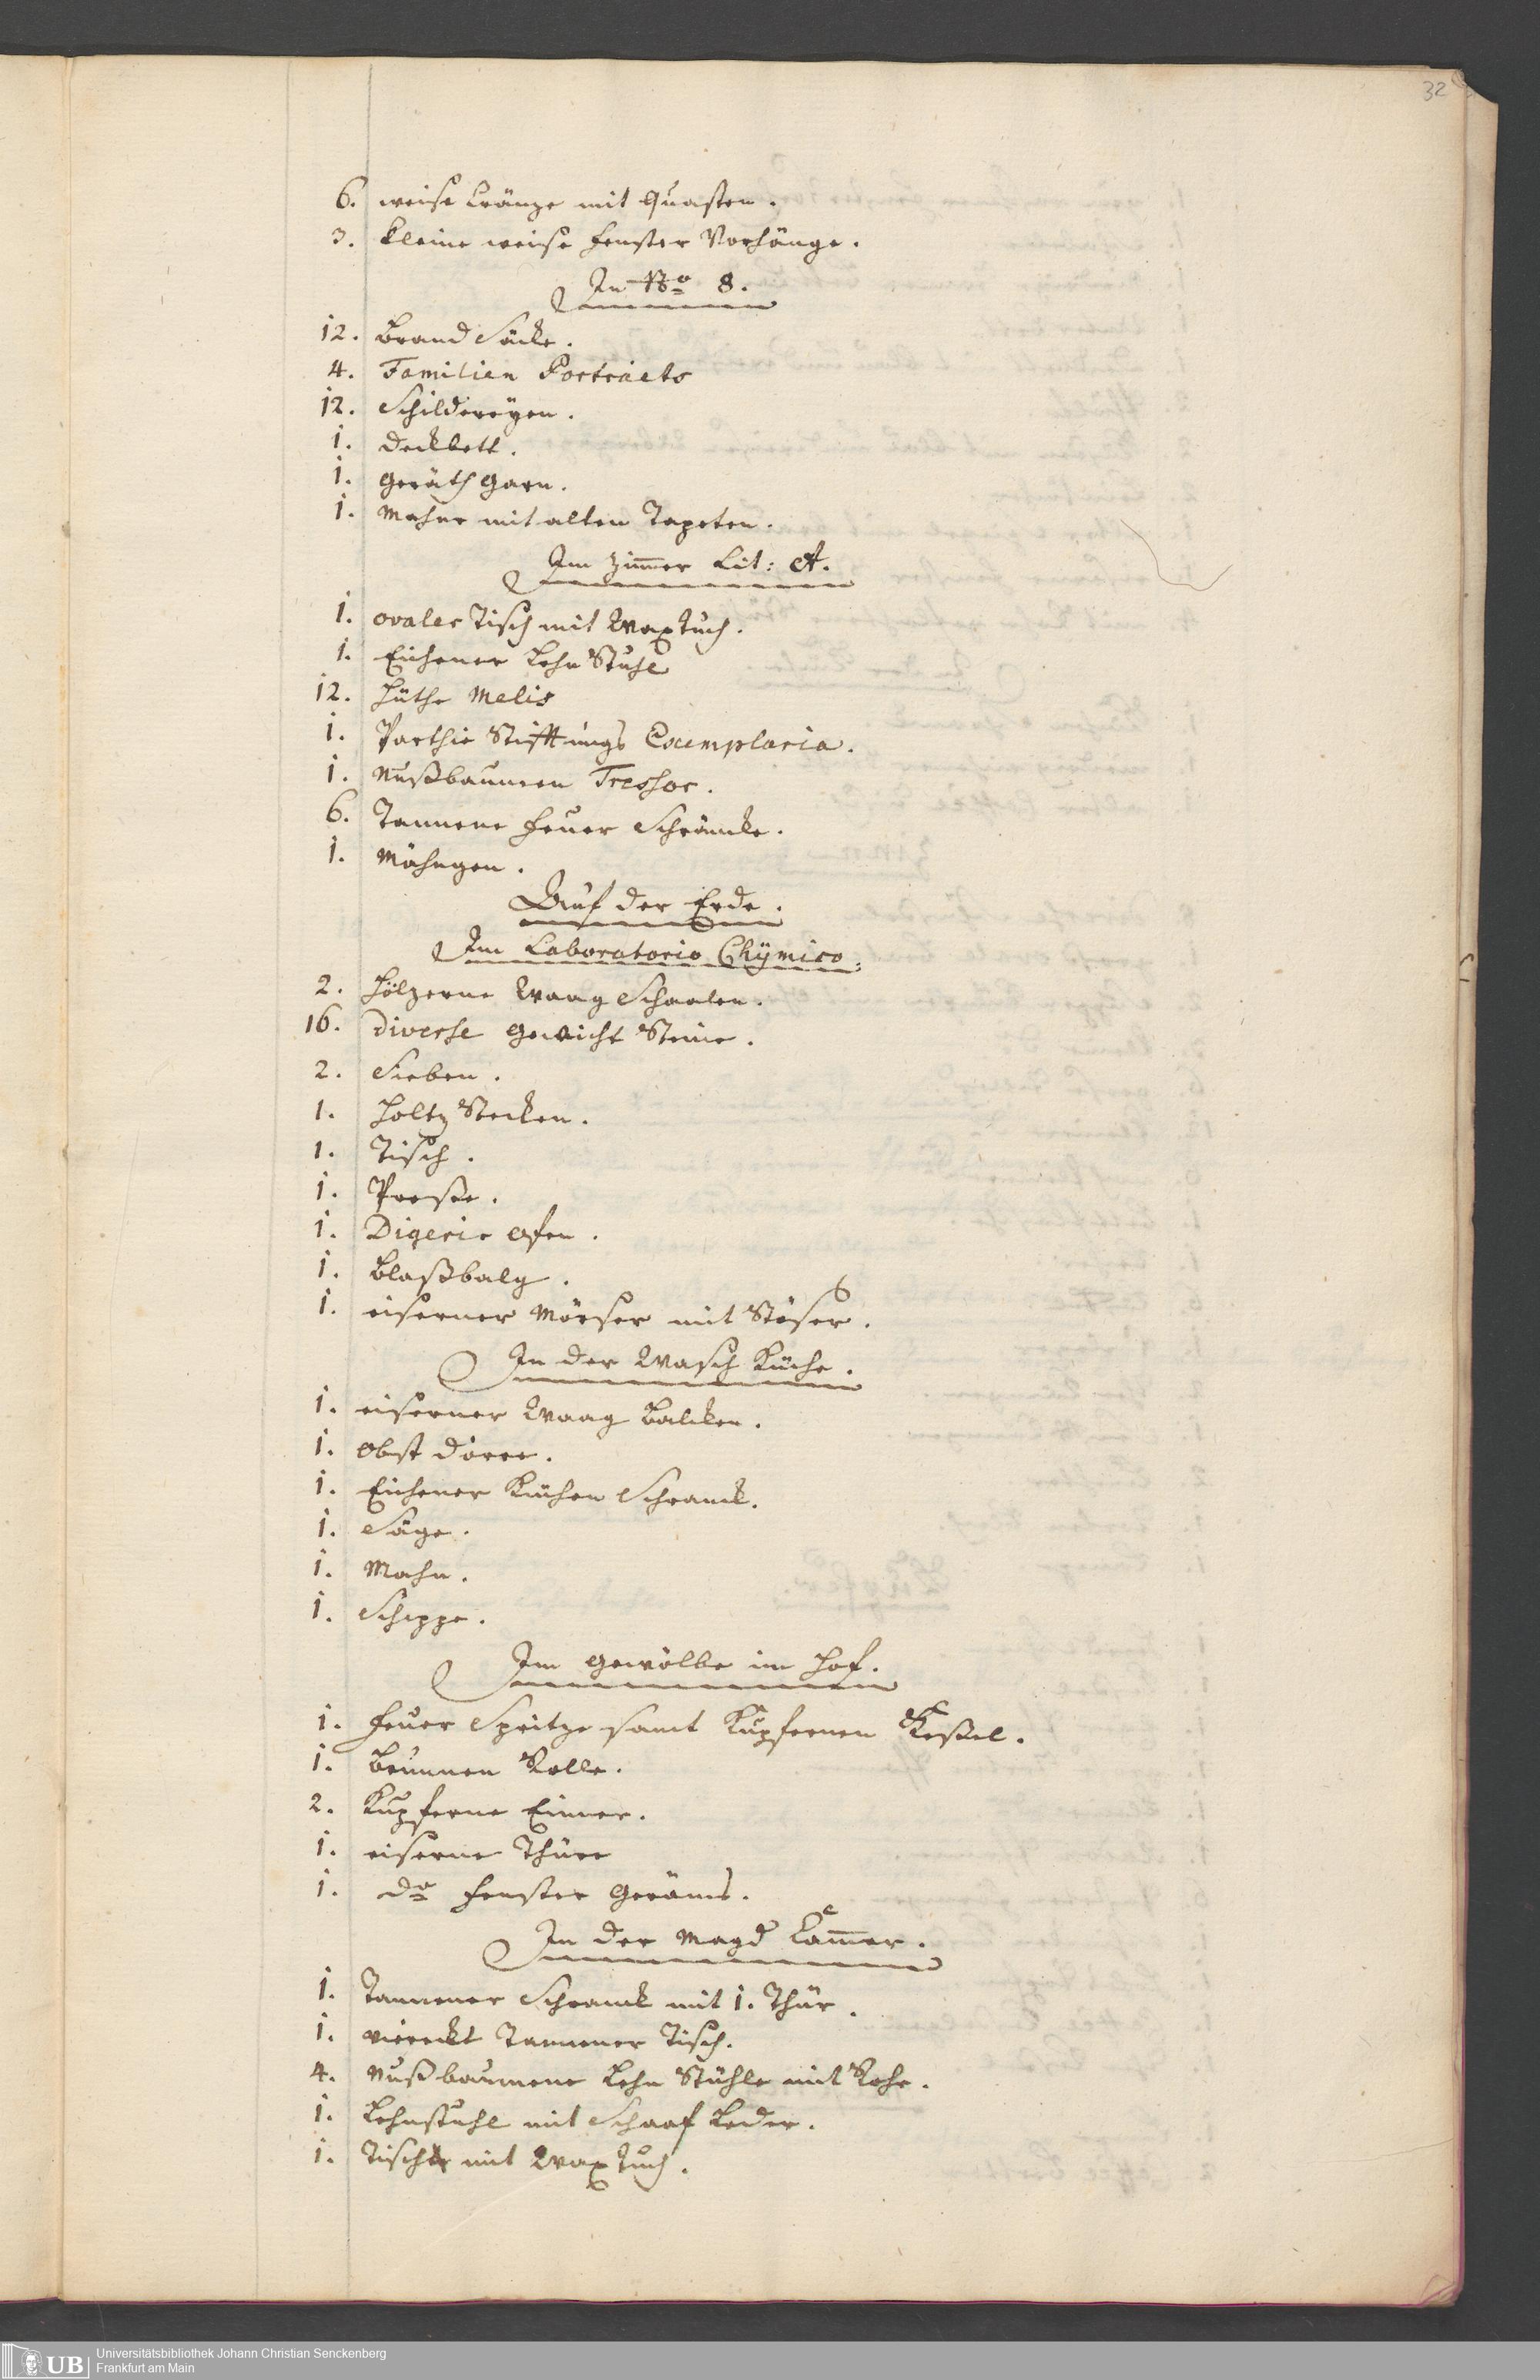 32
6. weise Cränze mit Quasten.
3. kleine weise Fenster Vorhänge.
In No 8.
12. Brand Säcke.
4. Familien Portraits
12. Schildereyen.
1. Deckbett.
1. Geräth Garn.
1. Mahne mit alten Tapeten.
Im Zimmer Lit: A.
1. ovaler Tisch mit Wax Tuch.
1. Eichener Lehn Stuhl
12. Hüthe Melis
1. Parthie Stifftungs Exemplaria.
1. Nußbaumen Tresor.
6. Tannene Feuer Schräncke.
1. Mähngen.
Auf der Erde.
Im Laboratorio Chÿmico.
2. Höltzerne Waag Schaalen.
16. Diverse Gewicht Steine.
2. Sieben.
1. Holtz Stecken.
1. Tisch.
1. Presse.
1. Digerir Ofen.
1. Blaßbalg.
1. eiserner Mörser mit Stöser.
In der Wasch Küche.
1. eiserner Waag Balcken.
1. Obst Dörre.
1. Eichener Küchen Schranck.
1. Säge.
1. Mahn.
1. Schippe.
Im Gewölbe im Hof.
1. Feuer Spritze samt Kupfernen Keßel.
1. Brunnen Rolle.
2. Kupferne Eimer.
1. eiserne Thüre
1. do Fenster Geräms.
In der Magd Cammer.
1. Tannener Schranck mit 1. Thür.
1. viereckt Tannener Tisch.
4. Nußbaumene Lehn Stühle mit Rohr.
1. Lehnstuhl mit Schaaf Leder.
1. Tisch mit Wax Tuch.
UB
Universitätsbibliothek Johann Christian Senckenberg
Frankfurt am Main